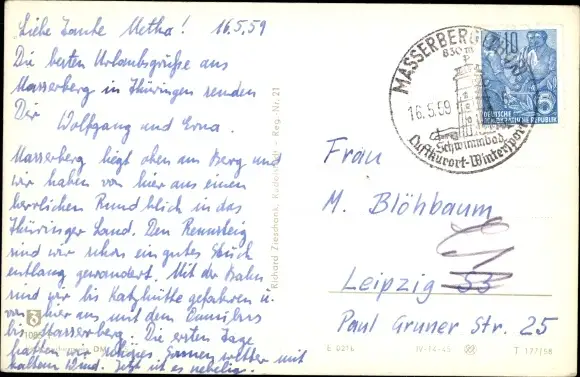 Liebe Tante Metha! 16.5.59
Die besten Urlaubsgrüße aus
Masserberg in Thüringen senden
Dir Wolfgang und Erna.
Masserberg liegt oben am Berg und
wir haben von hier aus einen
herrlichen Rundblick in das
Thüringer Land. Den Rennsteig
sind wir schon ein gutes Stück
entlang gewandert. Mit der Bahn
sind wir bis Katzhütte gefahren u.
von hier aus mit dem Omnibus
bis Masserberg. Die ersten Tage
hatten wir schönes Sonnenwetter mit
kaltem Wind. Jetzt ist es nebelig.
Richard Zieschank, Rudolstadt - Reg. Nr. 21
MASSERBERG (THÜR)
830 m
16.5.59
Schwimmbad
Luftkurort-Wintersport
10
DEUTSCHE
DEMOKRATISCHE REPUBLIK
Frau
M. Blöhbaum
Leipzig S3
Paul Gruner Str. 25
E 0216 IV-14-45 T 127/58